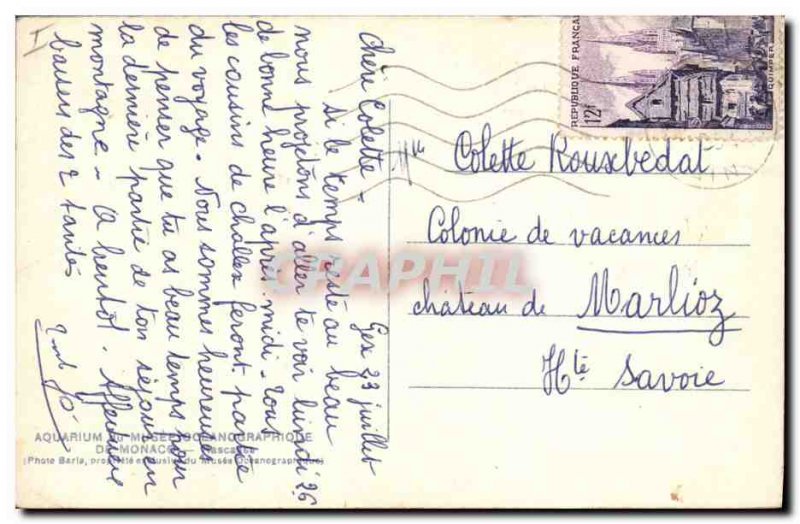 Gex 23 juillet
Chère Colette -
si le temps reste au beau
nous projetons d'aller te voir lundi 26
de bonne heure l'après midi - Tous
les cousins de challex feront partie
du voyage - Nous sommes heureuses
de penser que tu as beau temps pour
la dernière partie de ton séjour en
montagne - A bientôt. Affectueux
baisers des 2 tantes
Mlle Colette Rouxbédat
Colonie de vacances
château de Marlioz
Hte Savoie
REPUBLIQUE FRANÇAISE
12f
QUIMPER
CARPHIL
AQUARIUM du MUSÉE OCÉANOGRAPHIQUE
DE MONACO — Rascasse
(Photo Barla, propriété exclusive du Musée Océanographique)